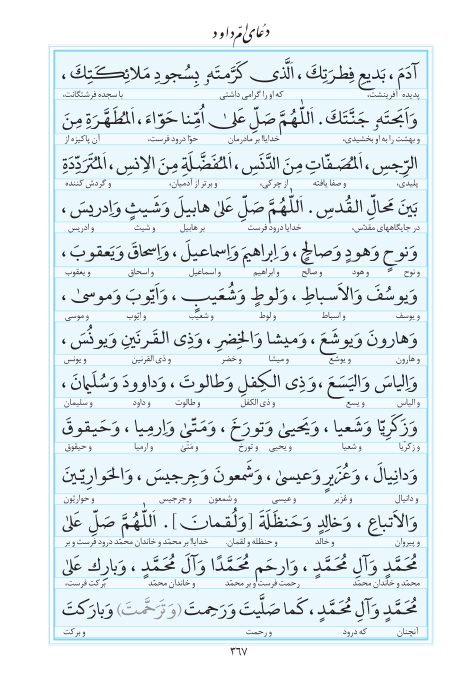 دعای امّ داود
آدَمَ ، بَديعِ فِطرَتِكَ ، اَلَّذى كَرَّمتَهُ بِسُجودِ مَلائِكَتِكَ ،
پدیده آفرینشت، که او را گرامی داشتی با سجده فرشتگانت،
وَاَبَحتَهُ جَنَّتَكَ . اَللّٰهُمَّ صَلِّ عَلىٰ اُمِّنا حَوّاءَ ، اَلمُطَهَّرَةِ مِنَ
و بهشت را به او بخشیدی، خدایا! بر مادرمان حوّا درود فرست، آن پاکیزه از
الرِّجسِ ، اَلمُصَفّاتِ مِنَ الدَّنَسِ ، اَلمُفَضَّلَةِ مِنَ الاِنسِ ، اَلمُتَرَدِّدَةِ
پلیدی، و صفا یافته از چرکی، و برتر از آدمیان، و گردش کننده
بَينَ مَحالِّ القُدسِ . اَللّٰهُمَّ صَلِّ عَلىٰ هابيلَ وَشَيثٍ وَاِدريسَ ،
در جایگاههای مقدّس، خدایا درود فرست بر هابیل و شیث و ادریس
وَنوحٍ وَهودٍ وَصالِحٍ ، وَاِبراهيمَ وَاِسماعيلَ ، وَاِسحاقَ وَيَعقوبَ ،
و نوح و هود و صالح و ابراهیم و اسماعیل و اسحاق و یعقوب
وَيوسُفَ وَالاَسباطِ ، وَلوطٍ وَشُعَيبٍ ، وَاَيّوبَ وَموسىٰ ،
و یوسف و اسباط و لوط و شعیب و ایّوب و موسی
وَهارونَ وَيوشَعَ ، وَميشا وَالخِضرِ ، وَذِى القَرنَينِ وَيونُسَ ،
و هارون و یوشع و میشا و خضر و ذی القرنین و یونس
وَاِلياسَ وَاليَسَعَ ، وَذِى الكِفلِ وَطالوتَ ، وَداوودَ وَسُلَيمانَ ،
و الیاس و یسع و ذی الکفل و طالوت و داود و سلیمان
وَزَكَرِيّا وَشَعيا ، وَيَحيىٰ وَتورَخَ ، وَمَتّىٰ وَاِرمِيا ، وَحَيقوقَ
و زکریّا و شعیا و یحیی و تورخ و متّی و ارمیا و حیقوق
وَدانِيالَ ، وَعُزَيرٍ وَعيسىٰ ، وَشَمعونَ وَجِرجيسَ ، وَالحَوارِيّينَ
و دانیال و عُزَیر و عیسی و شمعون و جرجیس و حواریّون
وَالاَتباعِ ، وَخالِدٍ وَحَنظَلَةَ [وَلُقمانَ] . اَللّٰهُمَّ صَلِّ عَلىٰ
و پیروان و خالد و حنظله و لقمان. خدایا! بر محمّد و خاندان محمّد درود فرست و بر
مُحَمَّدٍ وَآلِ مُحَمَّدٍ ، وَارحَم مُحَمَّدًا وَآلَ مُحَمَّدٍ ، وَبارِك عَلىٰ
محمّد و خاندان محمّد رحمت فرست و بر محمّد و خاندان محمّد برکت فرست،
مُحَمَّدٍ وَآلِ مُحَمَّدٍ ، كَما صَلَّيتَ وَرَحِمتَ (وَتَرَحَّمتَ) وَبارَكتَ
آنچنان که درود و رحمت و برکت
۳۶۷